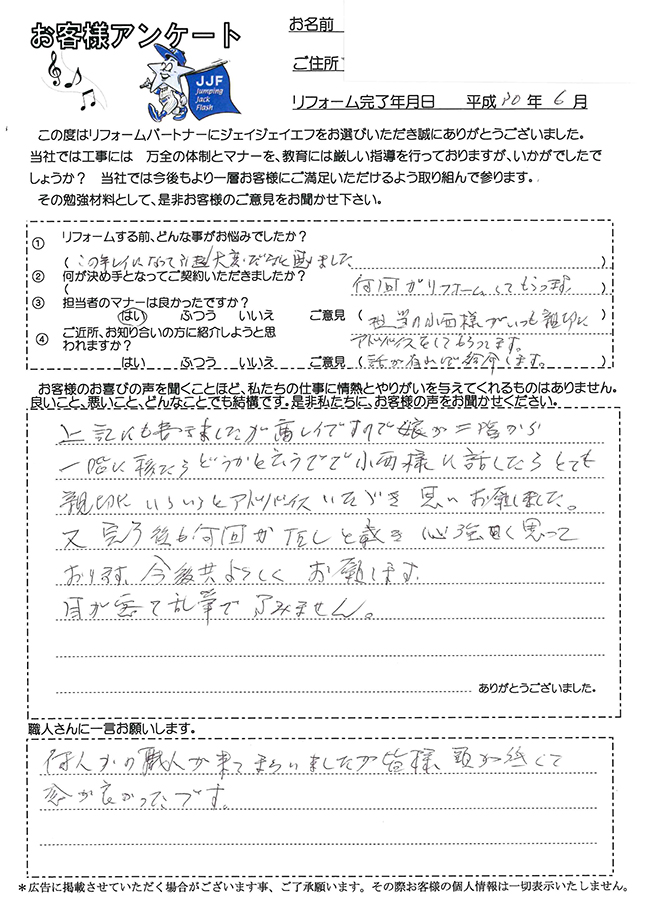 お客様アンケート
JJF
Jumping
Jack
Flash
お名前
ご住所
リフォーム完了年月日 平成 30 年 6 月
この度はリフォームパートナーにジェイジェイエフをお選びいただき誠にありがとうございました。
当社では工事には 万全の体制とマナーを、教育には厳しい指導を行っておりますが、いかがでしたで
しょうか? 当社では今後もより一層お客様にご満足いただけるよう取り組んで参ります。
その勉強材料として、是非お客様のご意見をお聞かせ下さい。
① リフォームする前、どんな事がお悩みでしたか?
( ました )
② 何が決め手となってご契約いただきましたか?
( 何回かリフォームしてもらってます )
③ 担当者のマナーは良かったですか?
はい ふつう いいえ ご意見 ( 担当の小西様がいつも親切に
アドバイスをしてもらってます。 )
④ ご近所、お知り合いの方に紹介しようと思
われますか?
はい ふつう いいえ ご意見 ( 話があれば紹介します。 )
お客様のお喜びの声を聞くことほど、私たちの仕事に情熱とやりがいを与えてくれるものはありません。
良いこと、悪いこと、どんなことでも結構です。是非私たちに、お客様の声をお聞かせください。
上記にも書きましたが高レイですので娘が二階から
一階に移たらどうかと云うで小西様に話したらとても
親切にいろいろとアドバイスいただき思いお願しました。
又完了後も何回かTELを戴き心強く思って
おります。今後共よろしくお願します。
目が悪て乱筆ですみません。
ありがとうございました。
職人さんに一言お願いします。
何人かの職人が来てもらいましたが皆様頭が低くて
感が良かったです。
*広告に掲載させていただく場合がございます事、ご了承願います。その際お客様の個人情報は一切表示いたしません。